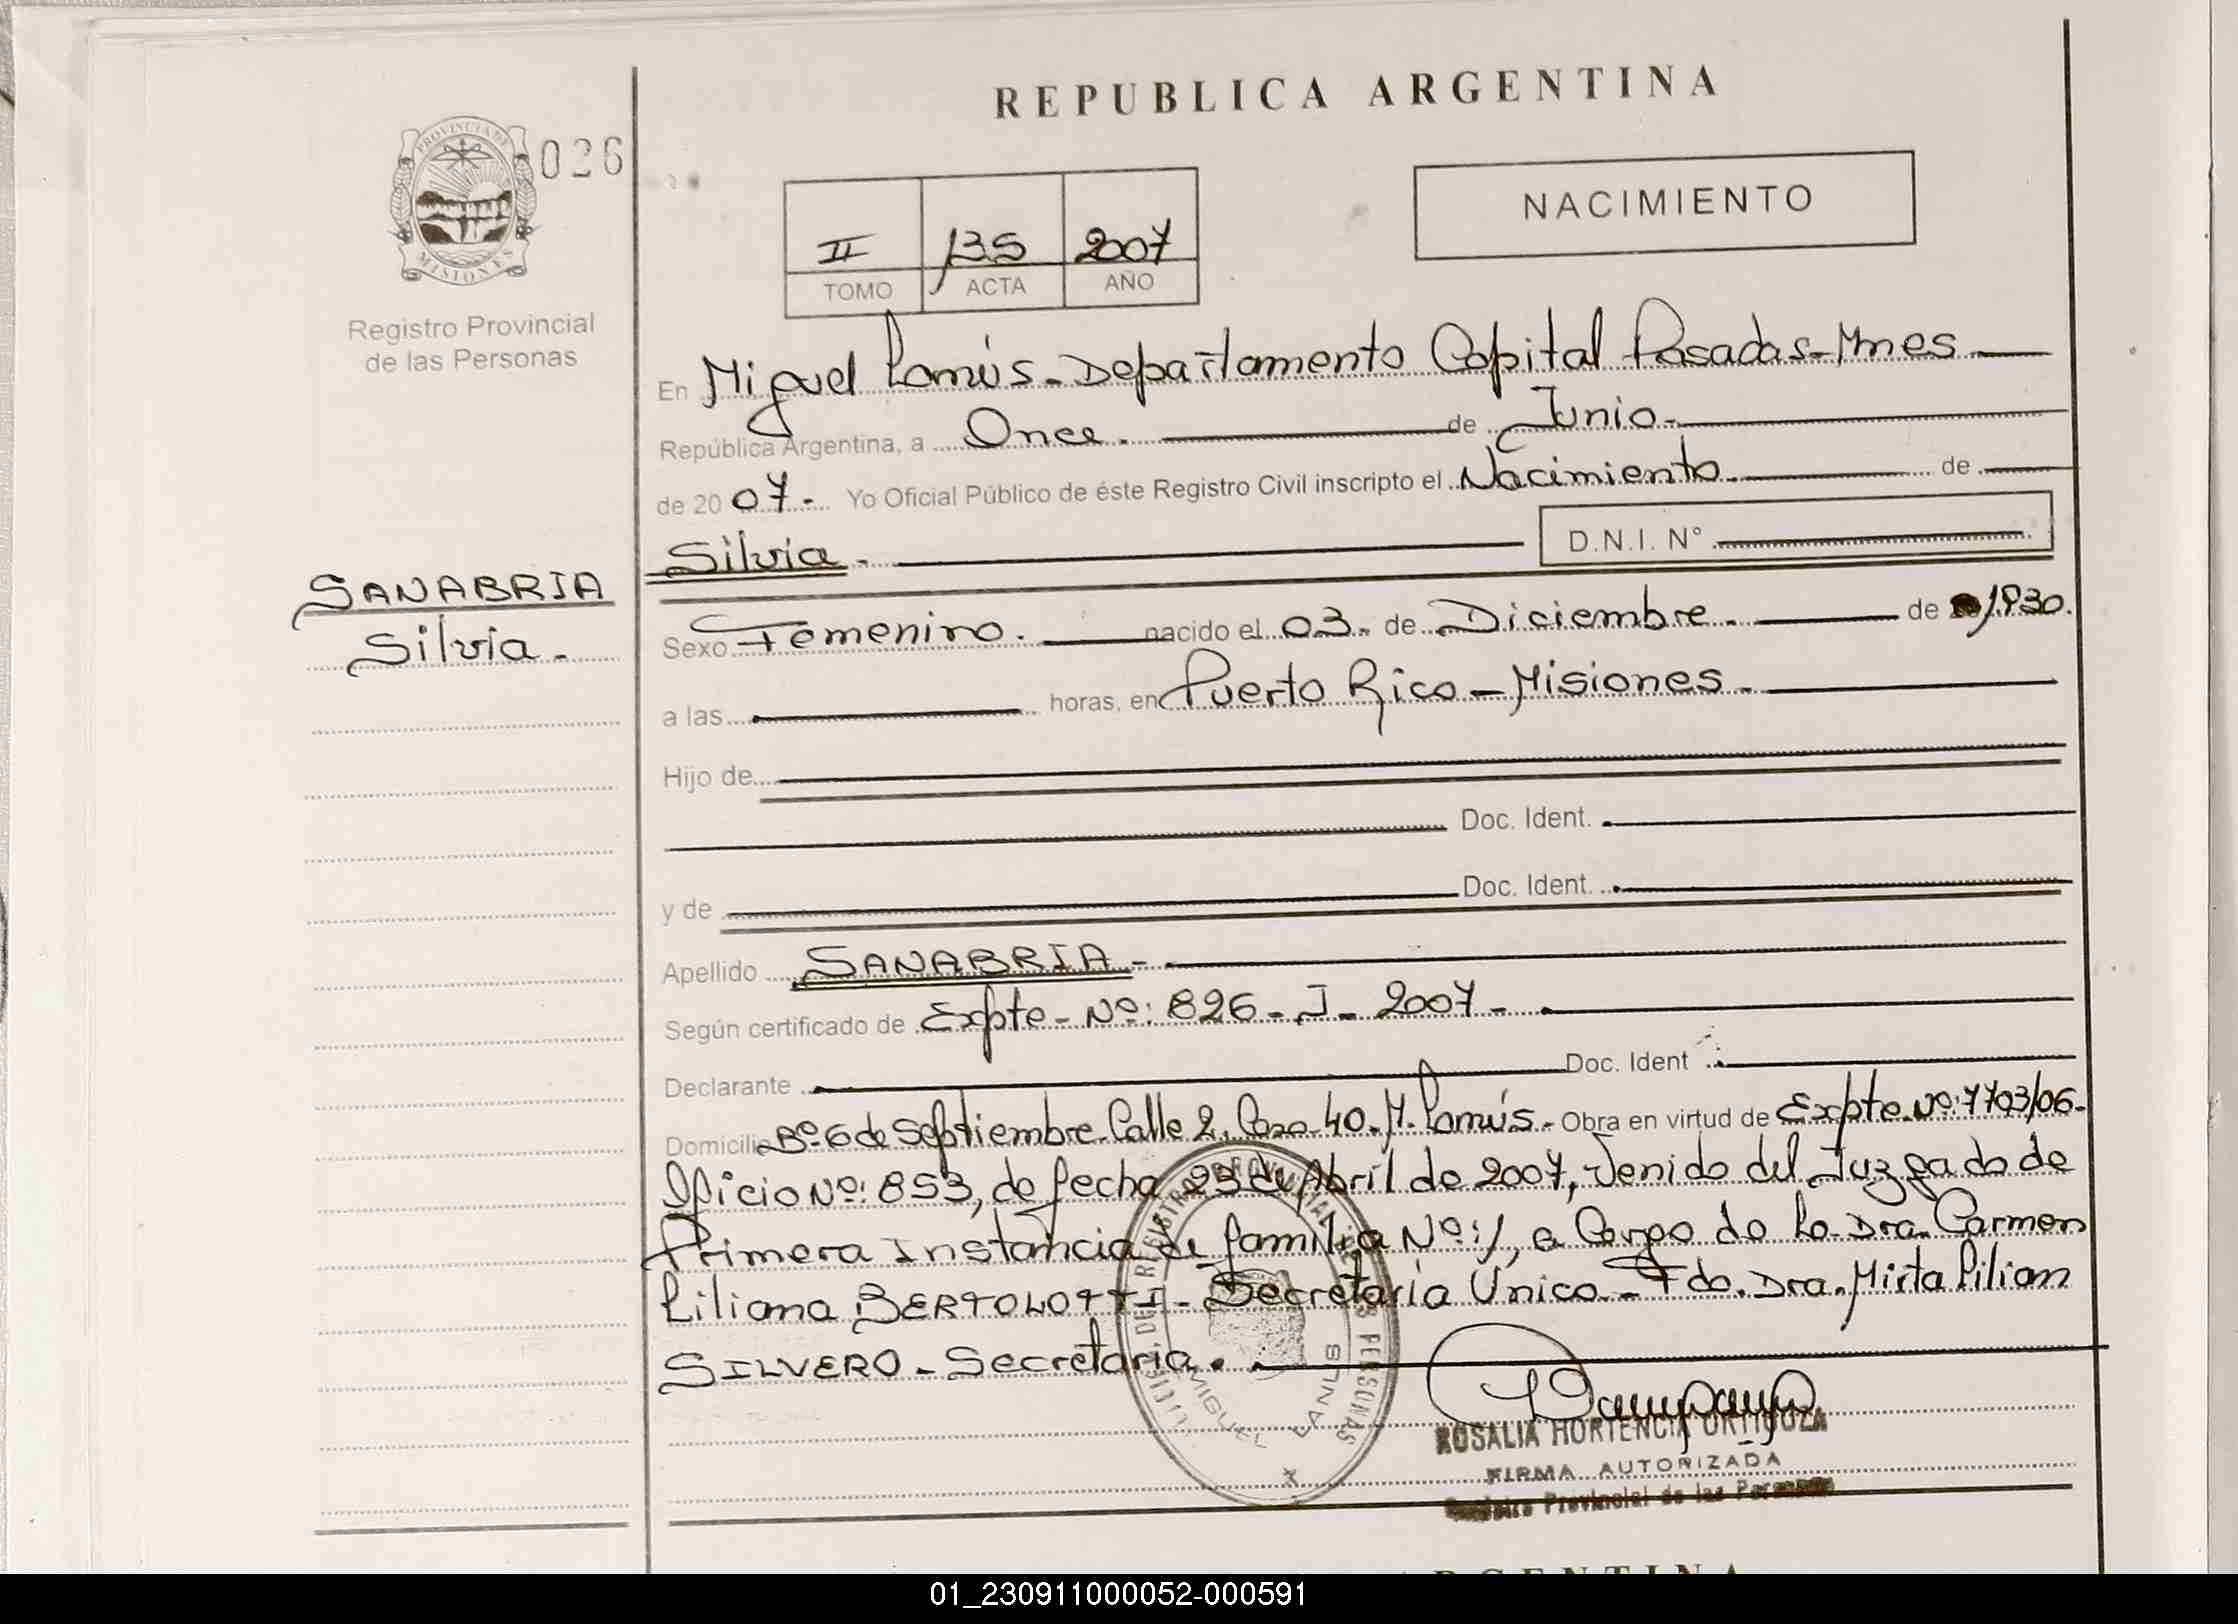 REPUBLICA ARGENTINA
PROVINCIA DE MISIONES
026
NACIMIENTO
II 135 2007
TOMO ACTA AÑO
Registro Provincial
de las Personas
En Miguel Lanús - Departamento Capital Posadas - Mnes
República Argentina, a Once. de Junio.
de 2007. Yo Oficial Público de éste Registro Civil inscripto el Nacimiento de
Silvia. D.N.I. Nº
SANABRIA
Silvia.
Sexo Femenino. nacido el 03. de Diciembre. de 1930.
a las horas, en Puerto Rico - Misiones.
Hijo de
Doc. Ident.
y de Doc. Ident.
Apellido SANABRIA -
Según certificado de Expte - Nº: 826 - J - 2007 -
Declarante Doc. Ident
Domicilio Bº 6 de Septiembre. Calle 2. Casa 40. M. Lanús. Obra en virtud de Expte. Nº: 7703/06.
Oficio Nº: 853, de fecha 23 de Abril de 2007, Venido del Juzgado de
Primera Instancia de familia Nº: 1, a Cargo de la Dra. Carmen
Liliana BERTOLOTTI - Secretaría Única - Fdo. Dra. Mirta Lilian
SILVERO - Secretaria.
MIGUEL LANUS
ROSALIA HORTENCIA ORTIGOZA
FIRMA AUTORIZADA
Registro Provincial de las Personas
ARGENTINA
01_230911000052-000591